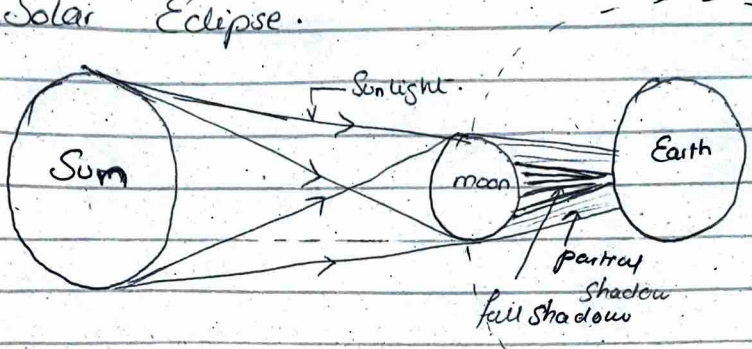 Solar Eclipse.
Sunlight.
Sum
moon
Earth
partial
shadow
full shadow